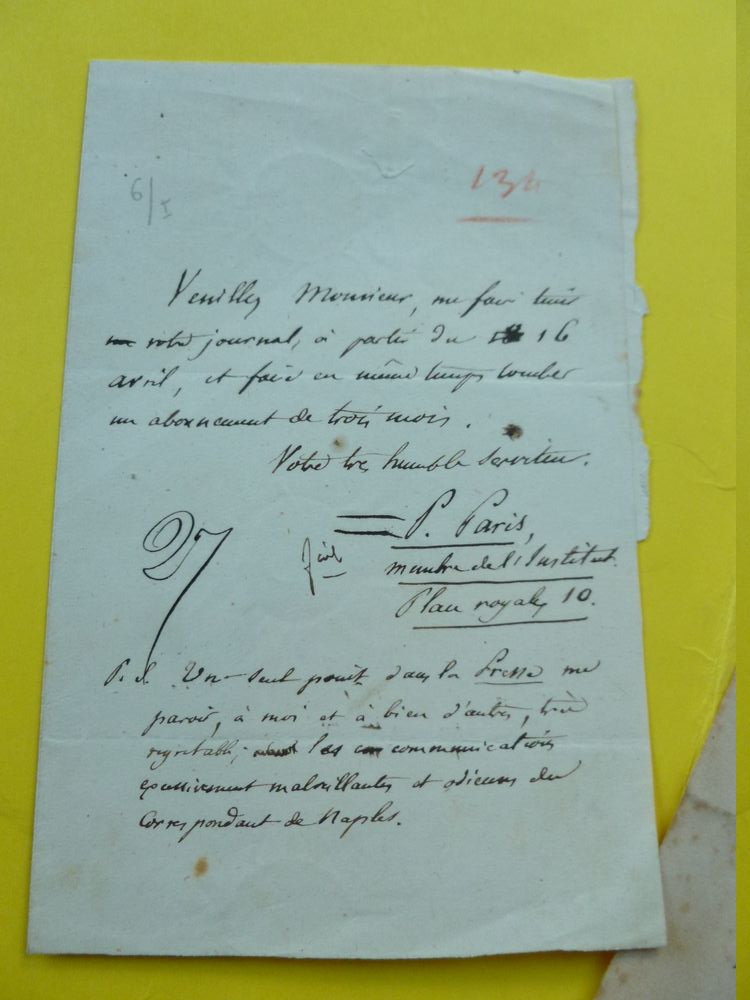 134
6/I
Veuillez Monsieur, me faire tenir
votre journal, à partir du 16
avril, et faire en même temps tomber
un abonnement de trois mois.
Votre très humble serviteur.
P. Paris,
membre de l'Institut.
Place royale, 10.
27
P. S. Un seul point dans la Presse me
paroit, à moi et à bien d'autres, très
regrettable; les communications
excessivement malveillantes et odieuses du
Correspondant de Naples.